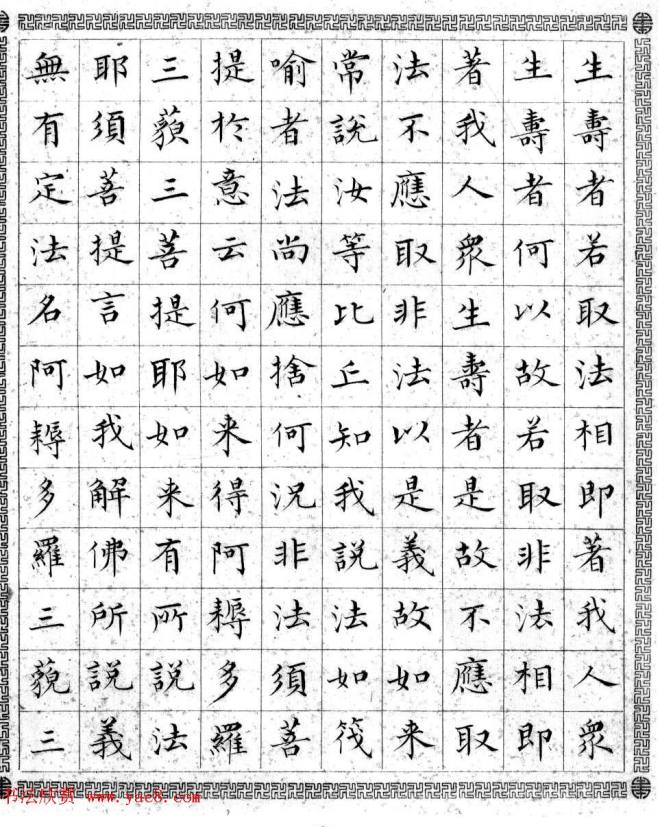 生壽者若取法相即著我人眾
生壽者何以故若取非法相即
著我人眾生壽者是故不應取
法不應取非法以是義故如来
常說汝等比丘知我說法如筏
喻者法尚應捨何況非法須菩
提於意云何如来得阿耨多羅
三藐三菩提耶如来有所說法
耶須菩提言如我解佛所說義
無有定法名阿耨多羅三藐三
书法欣赏 www.yac8.com